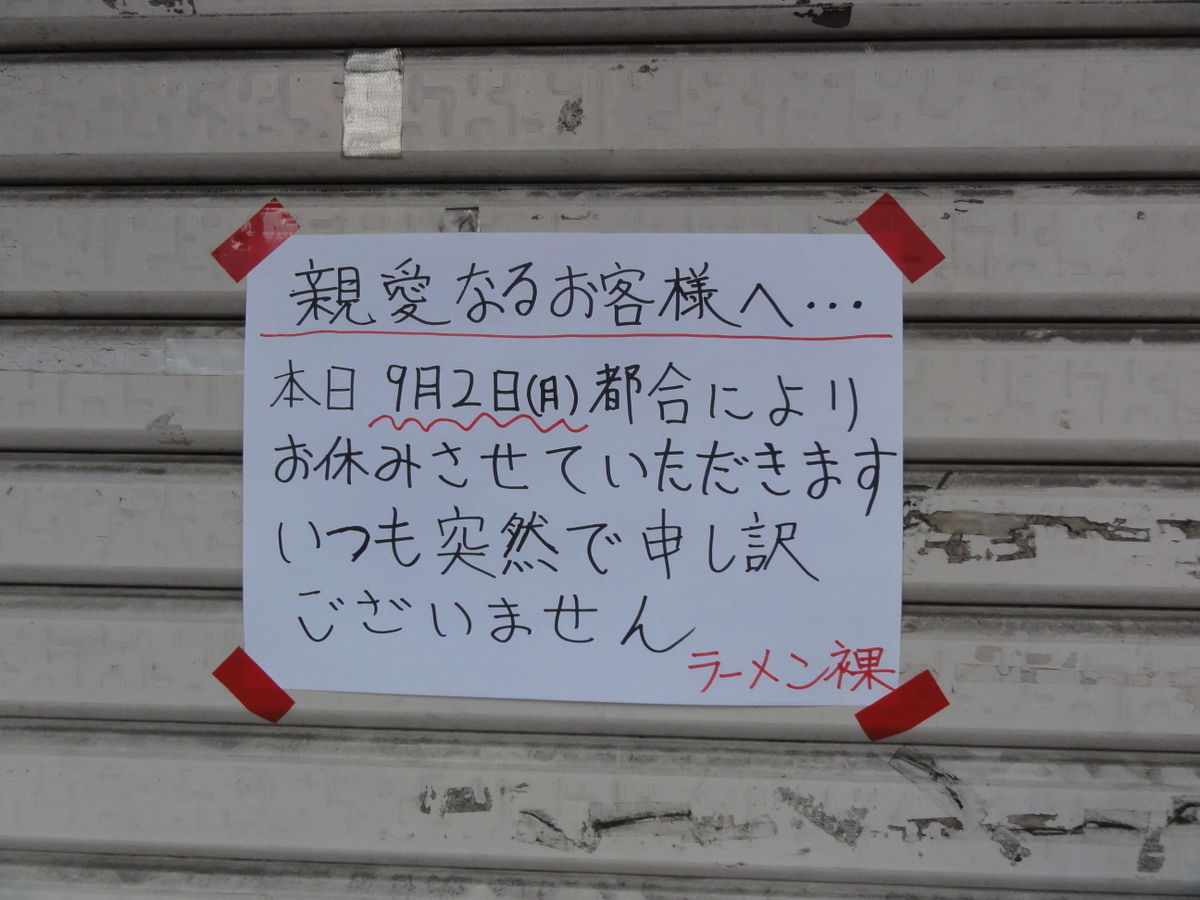 親愛なるお客様へ…
本日 9月2日(月)都合により
お休みさせていただきます
いつも突然で申し訳
ございません
ラーメン裸